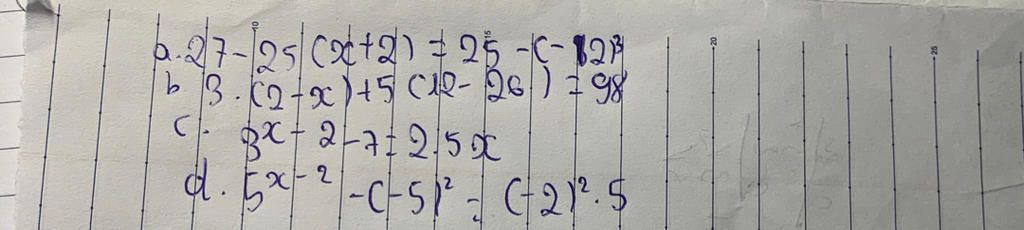 a. 27 - 25 (x+2) = 25 - (-12)³
b 3. (2-x) + 5 (12 - 26) = 98
c. 3x - 2 - 7 = 2.5x
d. 5^{x-2} - (-5)² = (-2)². 5